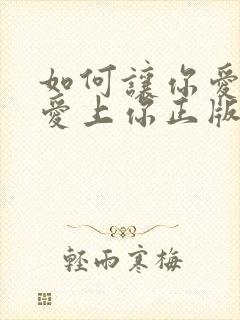 如何讓你愛
愛上你正版
輕雨寒梅